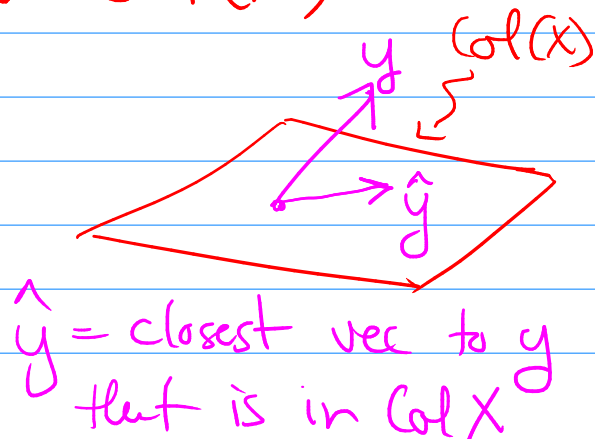 Col(X)
y
ŷ
ŷ = closest vec to y
that is in Col X